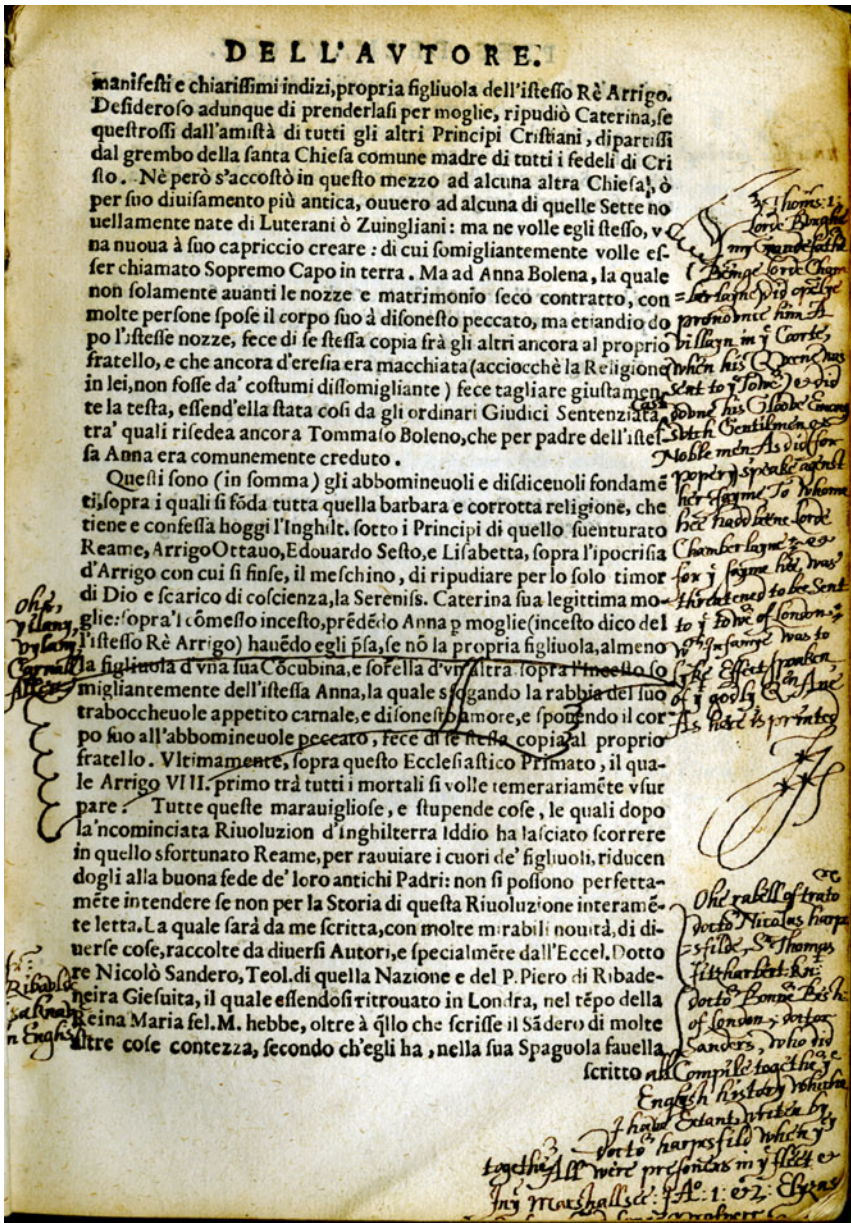 DELL'AVTORE.
manifesti e chiarissimi indizi, propria figliuola dell'istesso Rè Arrigo.
Desideroso adunque di prenderlasi per moglie, ripudiò Caterina, se
questrossi dall'amistà di tutti gli altri Principi Cristiani, dipartissi
dal grembo della santa Chiesa comune madre di tutti i fedeli di Cri
sto. Nè però s'accostò in questo mezzo ad alcuna altra Chiesa, ò
per suo diuisamento più antica, ouuero ad alcuna di quelle Sette no
uellamente nate di Luterani ò Zuingliani: ma ne volle egli stesso, v-
na nuoua à suo capriccio creare: di cui somigliantemente volle es-
ser chiamato Sopremo Capo in terra. Ma ad Anna Bolena, la quale
non solamente auanti le nozze e matrimonio seco contratto, con
molte persone spose il corpo suo à disonesto peccato, ma etiandio do
po l'istesse nozze, fece di se stessa copia frà gli altri ancora al proprio
fratello, e che ancora d'eresia era macchiata (acciocchè la Religione
in lei, non fosse da' costumi dissomigliante) fece tagliare giustamen
te la testa, essend'ella stata cosi da gli ordinari Giudici Sentenziata,
tra' quali risedea ancora Tommaso Boleno, che per padre dell'istes-
sa Anna era comunemente creduto.
Questi sono (in somma) gli abbomineuoli e disdiceuoli fondamē
ti, sopra i quali si fōda tutta quella barbara e corrotta religione, che
tiene e confessa hoggi l'Inghilt. sotto i Principi di quello suenturato
Reame, Arrigo Ottauo, Edouardo Sesto, e Lisabetta, sopra l'ipocrisia
d'Arrigo con cui si finse, il meschino, di ripudiare per lo solo timor
di Dio e scarico di coscienza, la Sereniss. Caterina sua legittima mo-
glie: sopra'l cōmesso incesto, prēdēdo Anna p moglie (incesto dico del
l'istesso Rè Arrigo) hauēdo egli p̄sa, se nō la propria figliuola, almeno
la figliuola d'vna sua Cōcubina, e sorella d'vn'altra sopra l'incesto so
migliantemente dell'istessa Anna, la quale sfogando la rabbia del suo
traboccheuole appetito carnale, e disonesto amore, e sponendo il cor
po suo all'abbomineuole peccato, fece di se stessa copia al proprio
fratello. Vltimamente, sopra questo Ecclesiastico Primato, il qua-
le Arrigo VIII. primo trà tutti i mortali si volle temerariamēte vsur
pare. Tutte queste marauigliose, e stupende cose, le quali dopo
la'ncominciata Riuoluzion d'Inghilterra Iddio ha lasciato scorrere
in quello sfortunato Reame, per rauuiare i cuori de' figliuoli, riducen
dogli alla buona fede de' loro antichi Padri: non si possono perfetta-
mēte intendere se non per la Storia di questa Riuoluzione interamē-
te letta. La quale sarà da me scritta, con molte mirabili nouità, di di-
uerse cose, raccolte da diuersi Autori, e specialmēte dall'Eccel. Dotto
re Nicolò Sandero, Teol. di quella Nazione e del P. Piero di Ribade-
neira Giesuita, il quale essendosi ritrouato in Londra, nel tēpo della
Reina Maria fel. M. hebbe, oltre à q̄llo che scrisse il Sādero di molte
altre cose contezza, secondo ch'egli ha, nella sua Spaguola fauella
scritto
Thoms: 1:
Lorde Burghe
my Grandefathe
Beinge Lorde Cham
=berlayne did openlye
pronounce him A
villayn in yͤ Coorte,
when his Queene was
sent to yͤ Towe &did
Cast
downe his Gloove Emong
Sutch Gentilmen &
Noble men As did for
popery speake agenst
her fayme To whome
hee hadd beene Lorde
Chamberlayne: &
for yͤ sayme hee was
threatened to bee Sent
to yͤ towe of London:
wͨh Infamye was to
lyke Effect spoaken
of yͤ godly Q: Ane
As here is printed
Ohe rabell of trato
dotto Nicolas harps
=filde, Sr Thomas
fittharbert: Kn:
dotto Bonne Bish:
of London; dottor
Sanders, who did
all Compile togethe yͤ
Englysh history whiche
I have Extant, written by
dotto harpsfild when yͤ
togethe All were presoners in yͤ fleet &
In yͤ Marshallsee: Aº: 1: &2: Elyzas
Ohe,
vylany,
vylany
Carnall
Allen
Ribalde
sa knave
n Englis